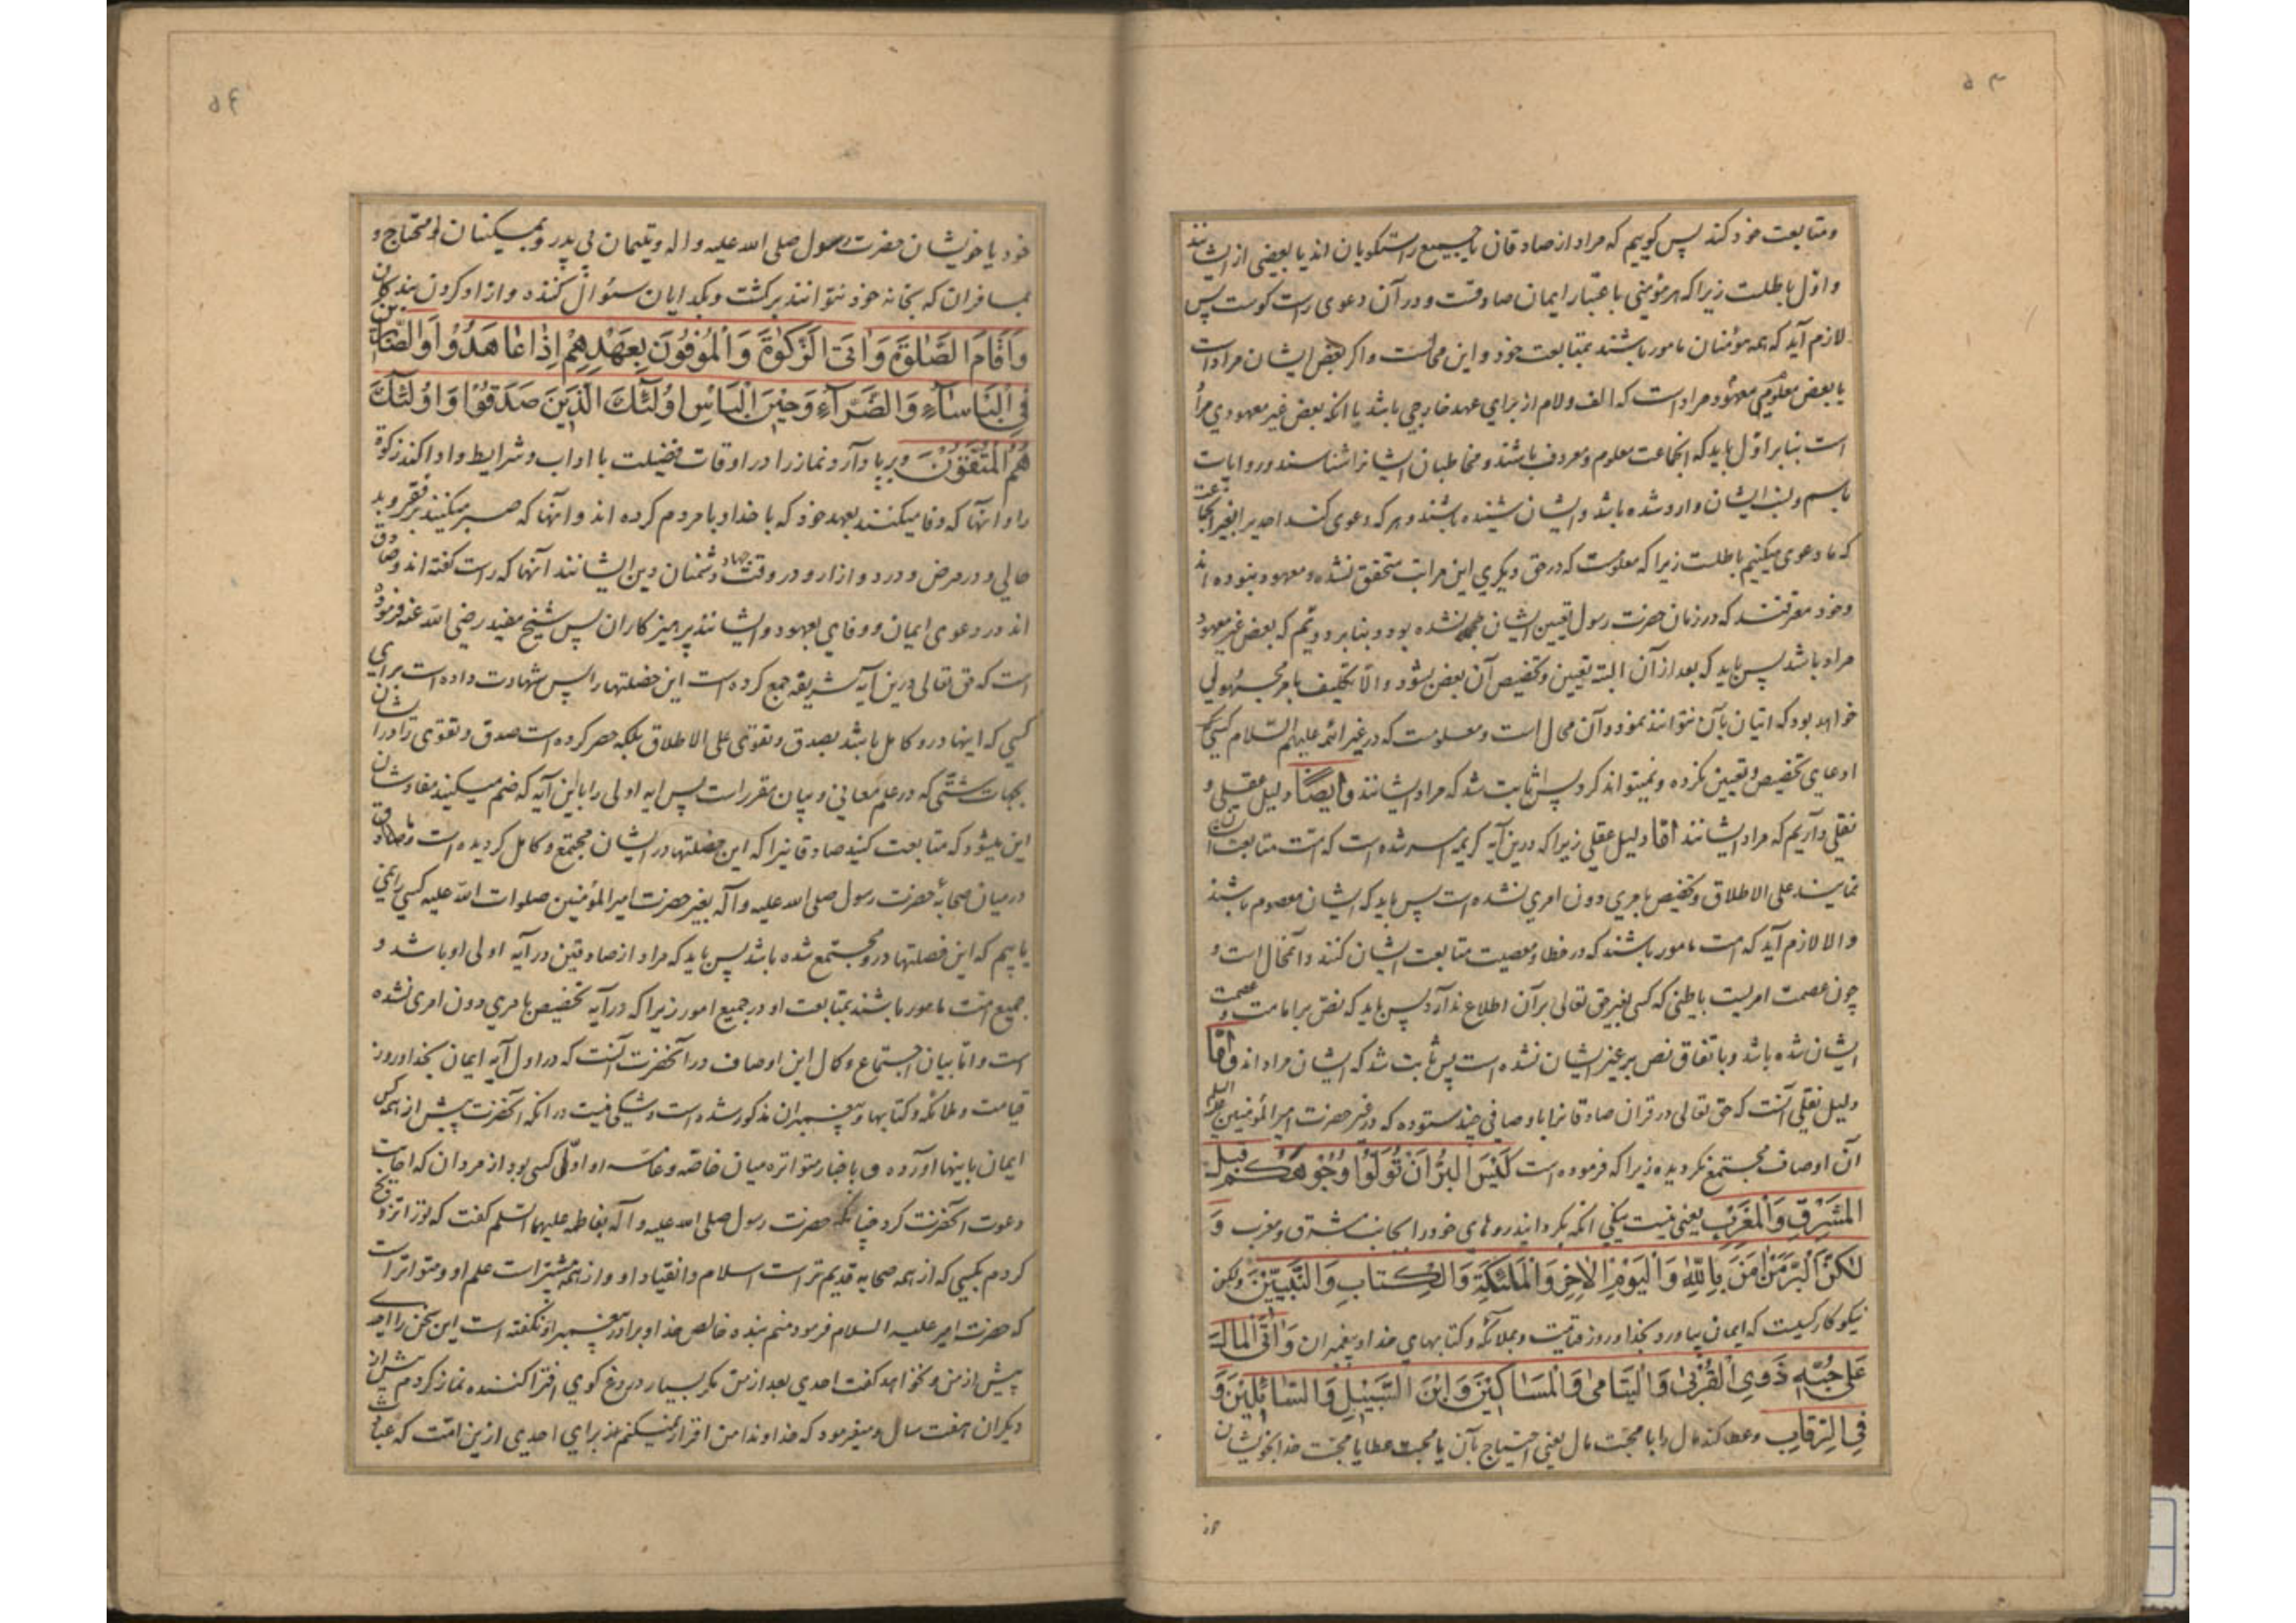 ۵۳
ومتابعت خود کند پس کوییم که مراد از صادقان یا جمیع راستکویان اند یا بعضی از ایشانند
و اول باطلست زیرا که هر مؤمنی باعتبار ایمان صادقست و در آن دعوی راست کوست پس
لازم آید که همه مؤمنان مامور باشند بمتابعت خود و این محالست و اکر بعض ایشان مراد است
یا بعض معلومی معهود مراد است که الف و لام از برای عهد خارجی باشد یا انکه بعض غیر معهودی مراد
است بنابر اول باید که انجماعت معلوم و معروف باشند و مخاطبان ایشانرا شناسند و روایات
باسم و نسب ایشان وارد شده باشد و ایشان شنیده باشند و هر که دعوی کند احدیرا بغیر انجماعت
که ما دعوی میکنیم باطلست زیرا که معلومست که در حق دیکری این مراتب متحقق نشده و معهود نبوده اند
وخود معترفند که در زمان حضرت رسول تعیین ایشان نشده بود و بنابر دویم که بعض غیر معهود
مراد باشد پس باید که بعد از آن البته تعیین و تخصیص آن بعض بشود و الا تکلیف بامر مجهولی
خواهد بود که اتیان بآن نتوانند نمود و آن محال است و معلومست که در غیر ائمه علیهم السلام کسی
ادعای تخصیص و تعیین نکرده و نمیتواند کرد پس ثابت شد که مراد ایشانند وایضاً دلیل عقلی و
نقلی داریم که مراد ایشانند اما دلیل عقلی زیرا که درین آیه کریمه امر شده است که امت متابعت ایشان
نمایند علی الاطلاق و تخصیص بامری دون امری نشده است پس باید که ایشان معصوم باشند
والا لازم آید که امت مامور باشند که در خطا و معصیت متابعت ایشان کنند و آنمحال است و
چون عصمت امریست باطنی که کسی بغیر حق تعالی بر آن اطلاع ندارد پس باید که نص بر امامت و عصمت
ایشان شده باشد و باتفاق نص بر غیر ایشان نشده است پس ثابت شد که ایشان مراد اند و اما
دلیل نقلی آنست که حق تعالی در قران صادقانرا باوصافی چند ستوده که در غیر حضرت امیر المؤمنین علیه السلم
آن اوصاف مجتمع نکردیده زیرا که فرموده است لَیْسَ الْبِرُّ اَنْ تُوَلُّوا وُجُوهَکُمْ قِبَلَ
الْمَشْرِقِ وَالْمَغْرِبِ یعنی نیست نیکی انکه بکردانید روهای خود را بجانب مشرق و مغرب وَ
لٰکِنَّ الْبِرَّ مَنْ اٰمَنَ بِاللّٰهِ وَالْیَوْمِ الْاٰخِرِ وَالْمَلٰئِکَةِ وَالْکِتَابِ وَالنَّبِیّینَ ولیکن
نیکو کار کسیست که ایمان بیاورد بخدا و روز قیامت و بملائکه و کتابهای خدا و پیغمبران وَاٰتَی الْمَالَ
عَلٰی حُبِّهِ ذَوِی الْقُرْبٰی وَالْیَتَامٰی وَالْمَسَاکِیْنَ وَابْنَ السَّبِیْلِ وَالسَّائِلِیْنَ وَ
فِی الرِّقَابِ وعطا کند مال را با محبت مال یعنی احتیاج بآن یا محبت عطا یا محبت خدا بخویشان
۵۴
خود یا خویشان حضرت رسول صلی الله علیه واله ویتیمان بی پدر وبمسکینان و محتاج و
بمسافران که بخانه خود نتوانند برکشت و بکدایان سئوال کننده و ازاد کردن بندکان
وَاَقَامَ الصَّلٰوةَ وَاٰتَی الزَّکٰوةَ وَالْمُوْفُوْنَ بِعَهْدِهِمْ اِذَا عَاهَدُوْا وَالصَّابِرِینَ
فِی الْبَاْسَاءِ وَالضَّرَّاءِ وَحِیْنَ الْبَاْسِ اُولٰئِکَ الَّذِیْنَ صَدَقُوْا وَاُولٰئِکَ
هُمُ الْمُتَّقُوْنَ وبرپا دارد نماز را در اوقات فضیلت با اداب و شرایط و ادا کند زکوة
را و انها که وفا میکنند بعهد خود که با خدا و با مردم کرده اند و انها که صبر میکنند بر فقر و بد
حالی و در مرض و درد و ازار و در وقت جهاد دشمنان دین ایشانند آنها که راست کفته اند و صادق
اند در دعوی ایمان و وفای بعهود و ایشانند پرهیز کاران پس شیخ مفید رضی الله عنه فرموده
است که حق تعالی درین آیه شریفه جمع کرده است این خصلتها را پس شهادت داده است برای
کسی که اینها درو کامل باشد بصدق و تقوی علی الاطلاق بلکه حصر کرده است صدق و تقوی را در ایشان
بجهات شتی که در علم معانی و بیان مقرر است پس ایه اولی را با این آیه که ضم میکنیم مفادشان
این میشود که متابعت کنید صادقانیرا که این خصلتها در ایشان مجتمع و کامل کردیده است و ما صادق
در میان صحابۀ حضرت رسول صلی الله علیه و آله بغیر حضرت امیر المؤمنین صلوات الله علیه کسی را نمی
یابیم که این خصلتها درو مجتمع شده باشد پس باید که مراد از صادقین در آیه اولی او باشد و
جمیع امت مامور باشند بمتابعت او در جمیع امور زیرا که در آیه تخصیص بامری دون امری نشده
است و اما بیان اجتماع و کمال این اوصاف در آنحضرت آنست که در اول آیه ایمان بخدا و روز
قیامت و ملائکه و کتابها و پیغمبران مذکور شده است و شکی نیست در انکه آنحضرت پیش از همه کس
ایمان باینها آورده و باخبار متواتره میان خاصه و عامه او اولی کسی بود از مردان که اجابت
دعوت آنحضرت کرد چنانکه حضرت رسول صلی الله علیه و آله بفاطمه علیهما السلم کفت که تورا تزویج
کردم بکسی که از همه صحابه قدیم تر است اسلام و انقیاد او و از همه بیشتر است علم او و متواتر است
که حضرت امیر علیه السلام فرمود منم بنده خالص خدا و برادر پیغمبر او نکفته است این سخن را احدی
پیش از من و نخواهد کفت احدی بعد از من مکر بسیار دروغ کوی افترا کننده نماز کردم پیش از
دیکران هفت سال و میفرمود که خداوندا من اقرار نمیکنم از برای احدی ازین امت که عبادت